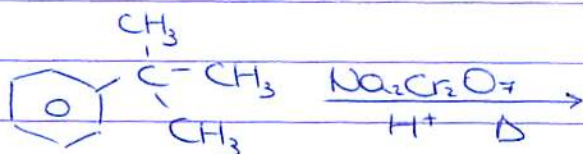 CH3
C - CH3 Na2Cr2O7
CH3 H+ Δ